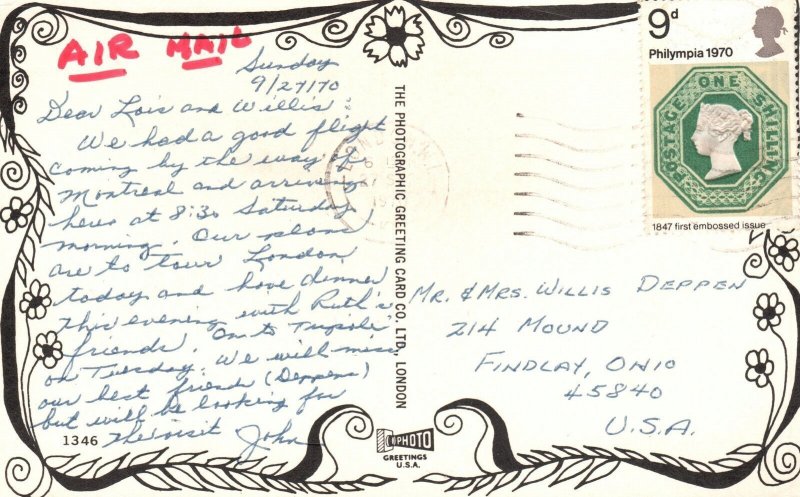 AIR MAIL
Sunday
9/27/70
Dear Lois and Willis
We had a good flight
coming by the way of
Montreal and arriving
here at 8:30 Saturday
morning. Our plans
are to tour London
today and have dinner
this evening with Ruth's
friends. On to
on Tuesday. We will miss
our best friends (Deppens)
but will be looking for
the visit John
1346
THE PHOTOGRAPHIC GREETING CARD CO. LTD., LONDON
PHOTO
GREETINGS
U.S.A.
9d
Philympia 1970
POSTAGE ONE SHILLING
1847 first embossed issue
MR. & MRS. WILLIS DEPPEN
214 MOUND
FINDLAY, OHIO
45840
U.S.A.